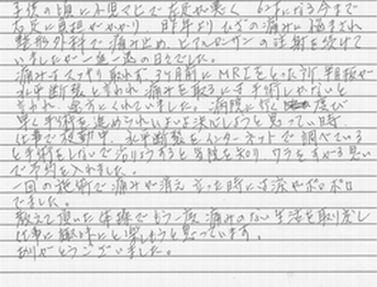 子供の頃に小児マヒで左足が悪く 62になる今まで
右足に負担がかかり 昨年よりひざの痛みに悩まされ
整形外科で痛み止め、ヒアルロンサンの注射を続けて
いましたが一進一退の日々でした。
痛みはスッキリ取れず、3ヶ月前にMRIをとった所半月板が
水平断裂と言われ痛みを取るには手術しかないと
言われ、途方にくれていました。病院に行く度び
早く手術を進められいよいよ決心しようと思っていた時、
仕事で移動中、水平断裂をインターネットで調べている
と手術をしないで治りようすると当院を知り ワラをもすがる思い
で予約を入れました。
一回の施術で痛みが消え 立った時には涙がポロポロ
でました。
教えて頂いた体操でもう一度痛みのない生活を取り戻し
仕事に趣味にと楽しもうと思っています。
ありがとうございました。